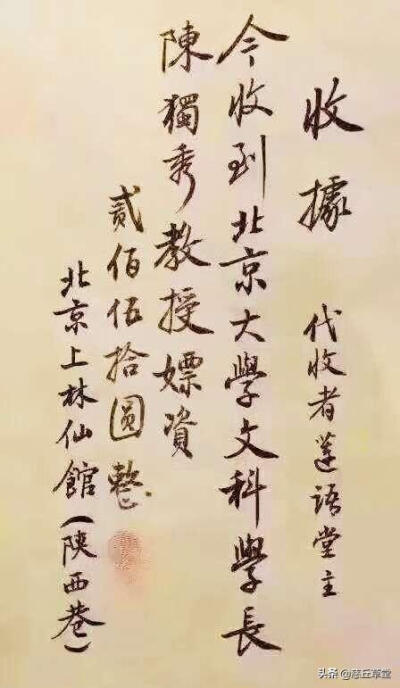 收據
代收者蓮語堂主
今收到北京大學文科學長
陳獨秀教授嫖資
貳佰伍拾圓整
北京上林仙館(陝西巷)
头条@慈丘草堂